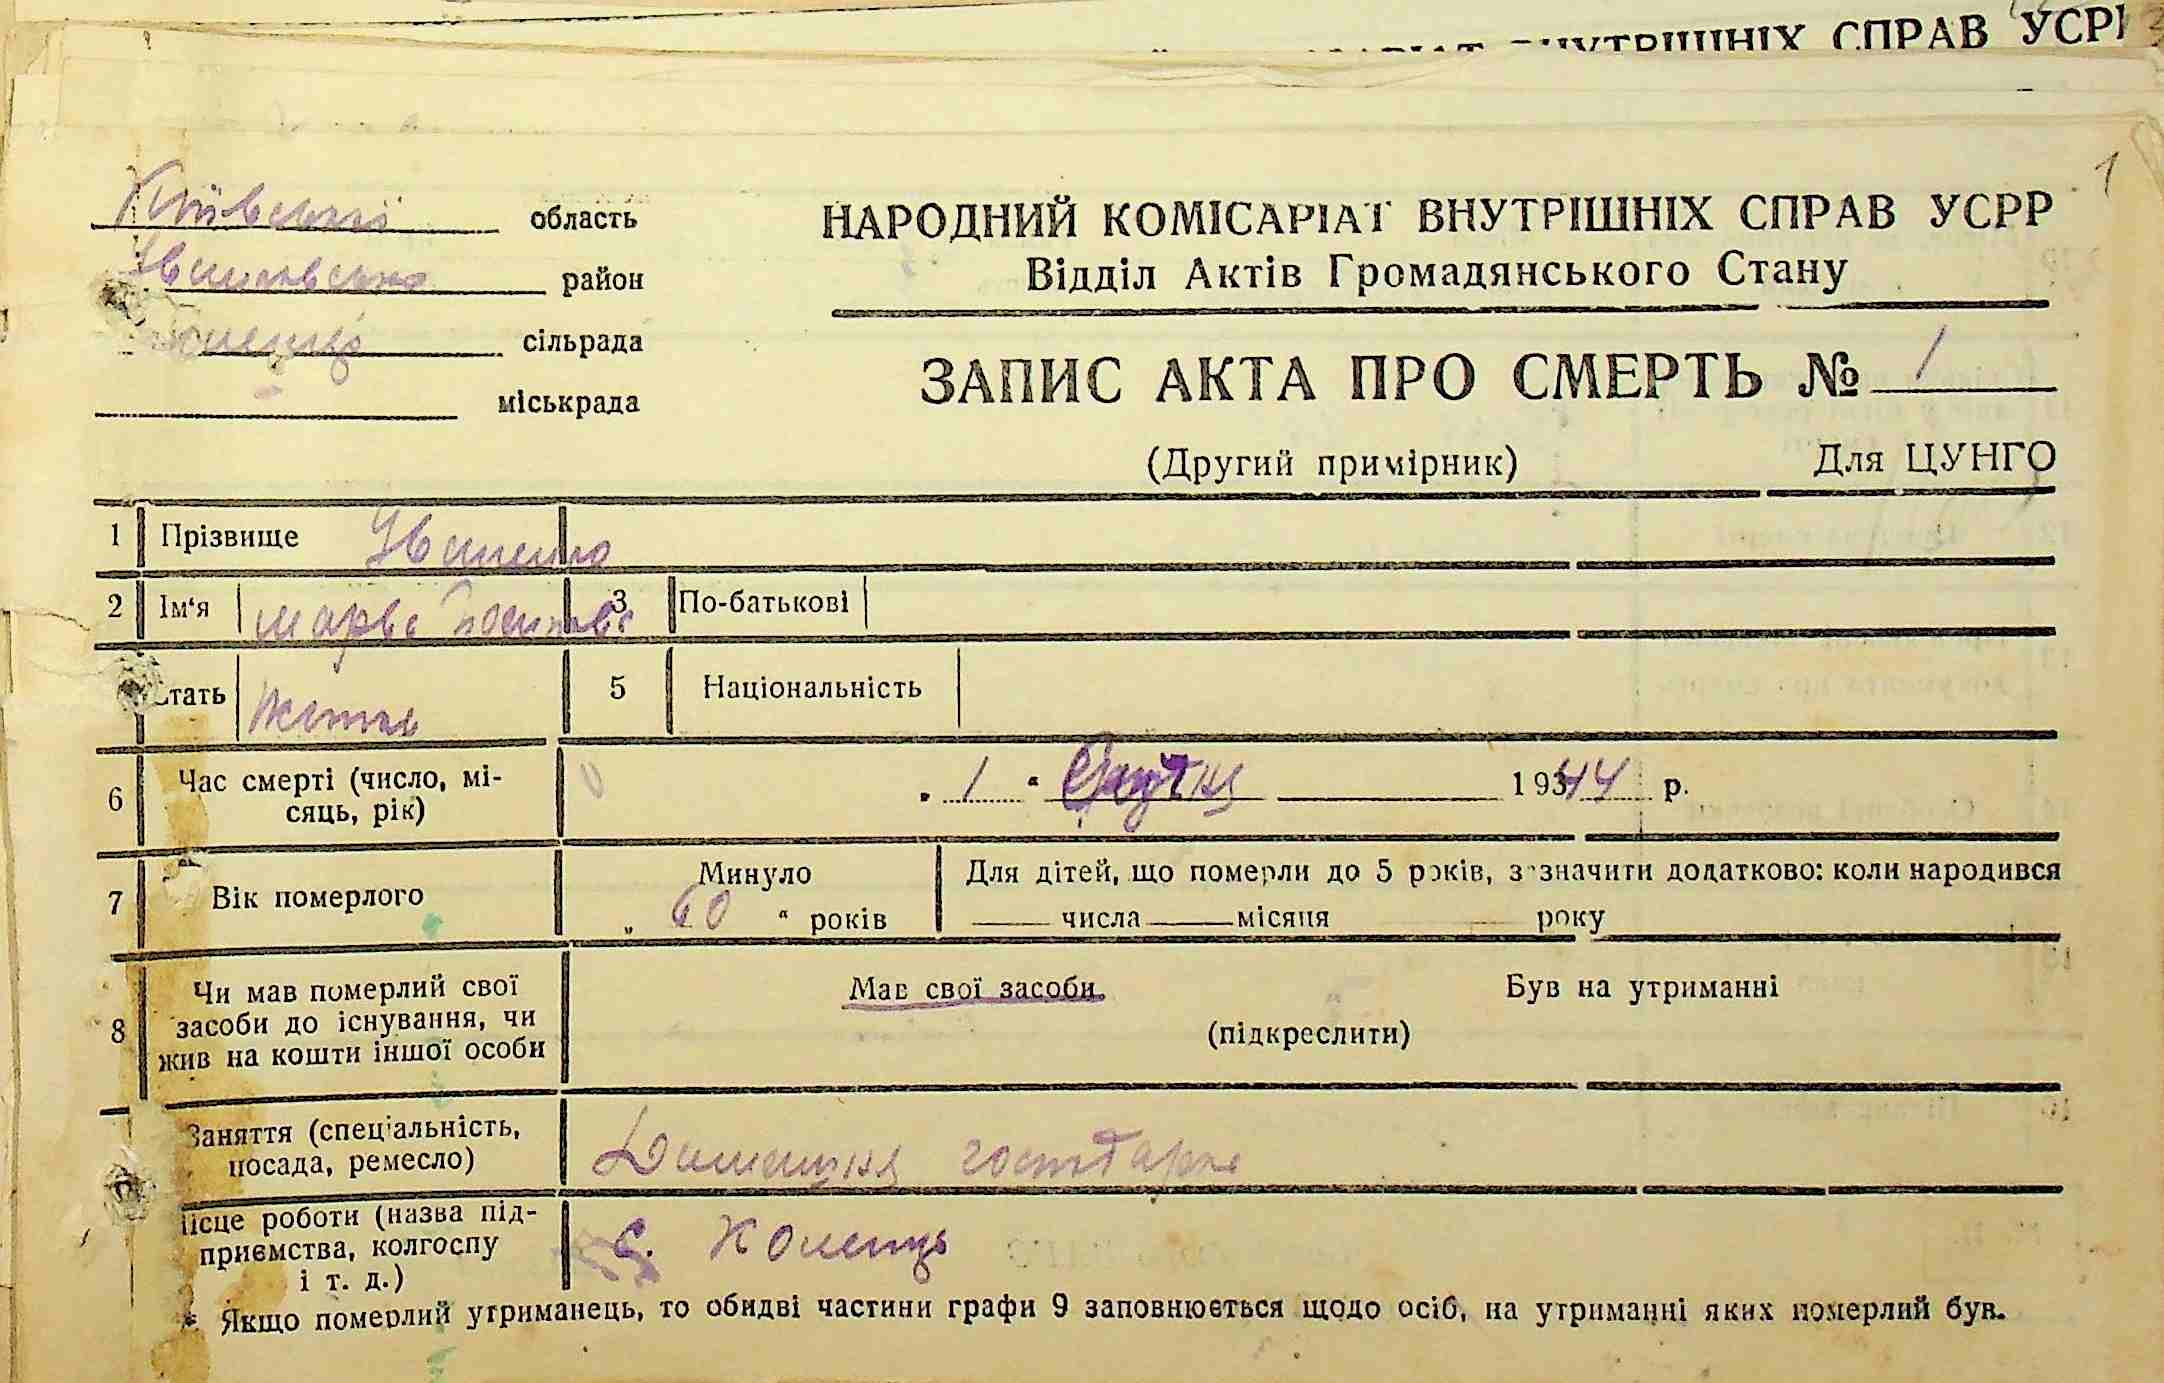 ВНУТРІШНІХ СПРАВ УСРР
1
Київської область
Іванківсько район
сільрада
міськрада
НАРОДНИЙ КОМІСАРІАТ ВНУТРІШНІХ СПРАВ УСРР
Відділ Актів Громадянського Стану
ЗАПИС АКТА ПРО СМЕРТЬ № 1
(Другий примірник) Для ЦУНГО
1 Прізвище
2 Ім‘я 3 По-батькові
Стать 5 Національність
6 Час смерті (число, мі-
сяць, рік)
„ 1 “ Січня 1944 р.
7 Вік померлого
Минуло
„ 60 “ років
Для дітей, що померли до 5 років, зазначити додатково: коли народився
числа місяця року
8 Чи мав померлий свої
засоби до існування, чи
жив на кошти іншої особи
Мав свої засоби Був на утриманні
(підкреслити)
Заняття (спеціальність,
посада, ремесло)
Домашня господарка
Місце роботи (назва під-
приємства, колгоспу
і т. д.)
с.
* Якщо померлий утриманець, то обидві частини графи 9 заповнюється щодо осіб, на утриманні яких померлий був.